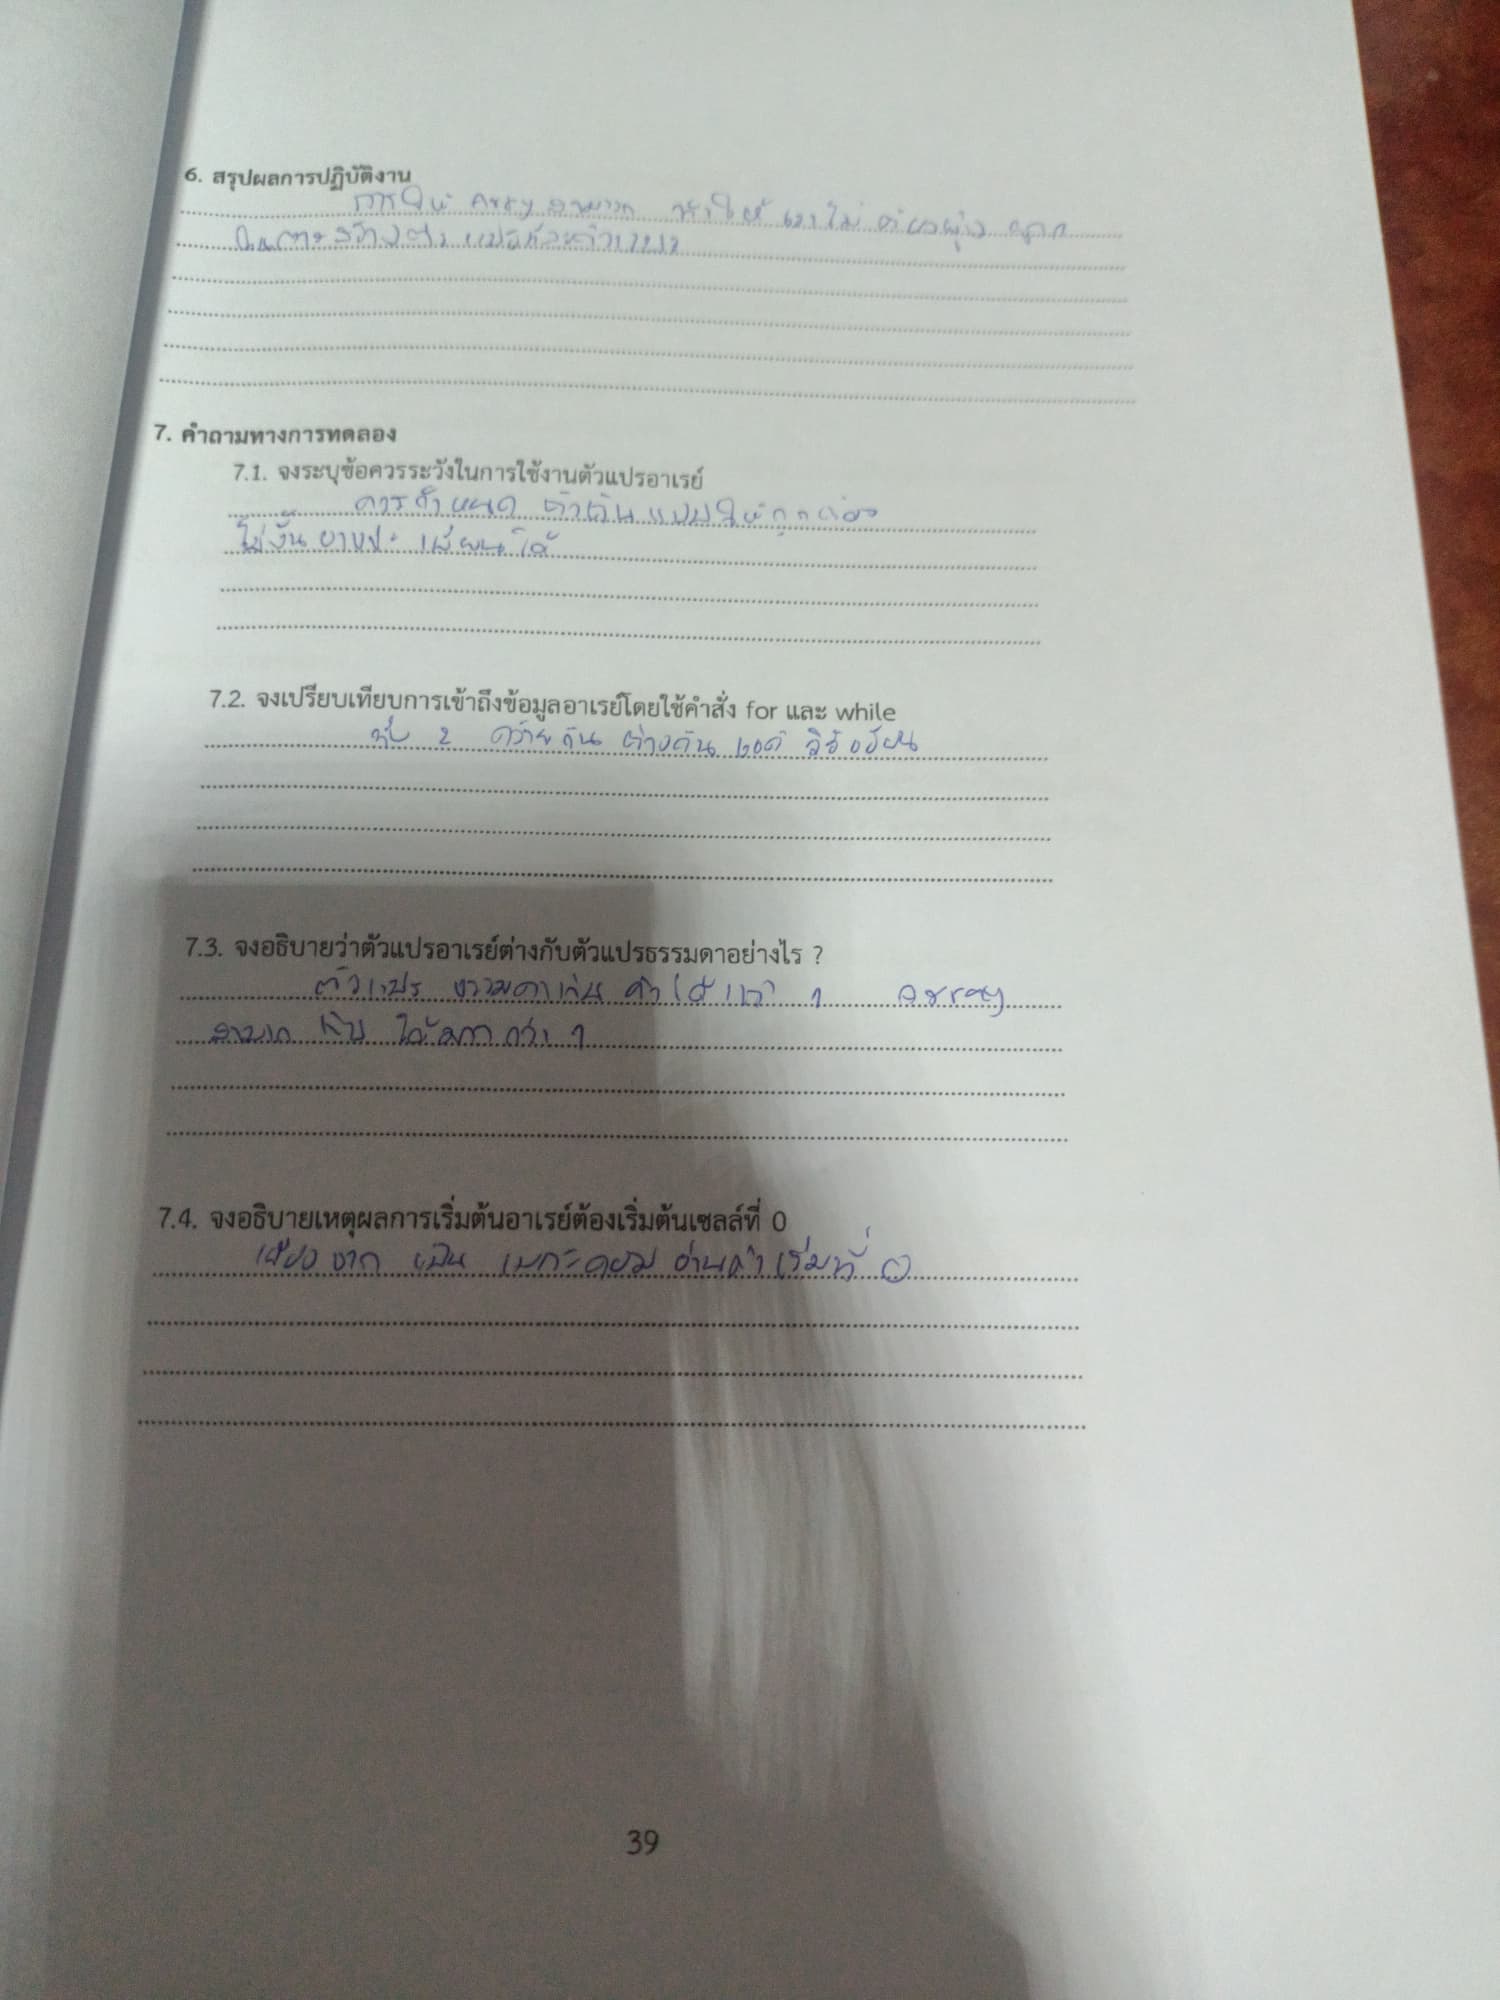 6. สรุปผลการปฏิบัติงาน
การใช้ array สามารถ ทำให้ เราไม่ ต้องยุ่ง ยาก
ในการสร้างตัวแปร
7. คำถามทางการทดลอง
7.1. จงระบุข้อควรระวังในการใช้งานตัวแปรอาเรย์
ควรกำหนด ให้ถูกต้อง
ไม่งั้น
7.2. จงเปรียบเทียบการเข้าถึงข้อมูลอาเรย์โดยใช้คำสั่ง for และ while
ทั้ง 2 คล้ายกัน ต่างกัน แค่ วิธีเขียน
7.3. จงอธิบายว่าตัวแปรอาเรย์ต่างกับตัวแปรธรรมดาอย่างไร ?
ตัวแปร ธรรมดาเก็บ ค่าได้แค่ 1 array
สามาถ เก็บ ได้มากกว่า 1
7.4. จงอธิบายเหตุผลการเริ่มต้นอาเรย์ต้องเริ่มต้นเซลล์ที่ 0
เนื่องจาก เป็น อ่านค่าเริ่มที่ 0
39